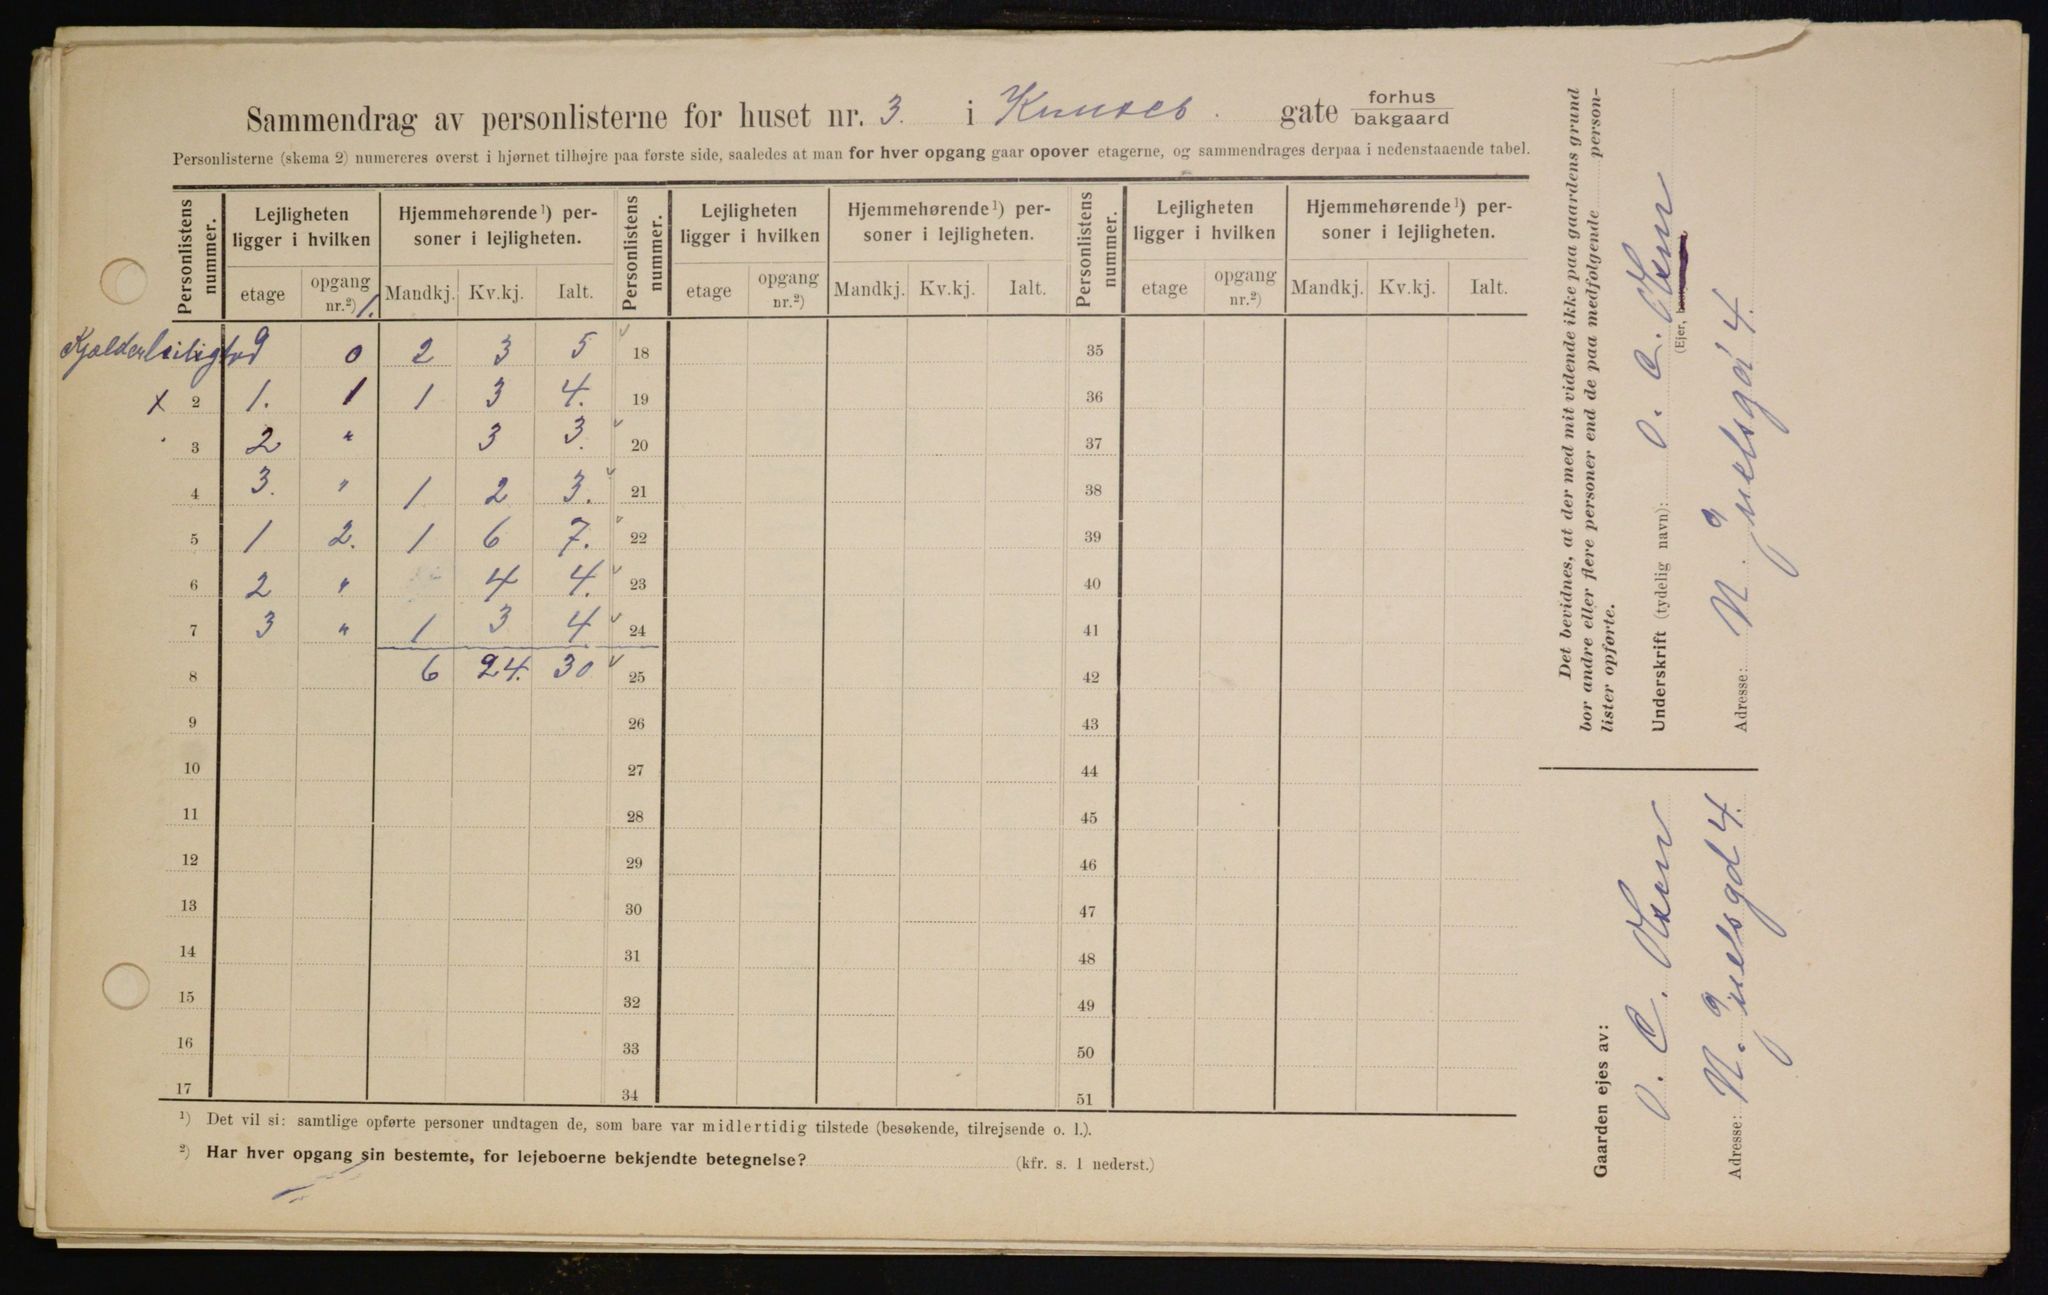 Sammendrag av personlisterne for huset nr. 3. i Knuses gate forhus bakgaard
Personlisterne (skema 2) numereres øverst i hjørnet tilhøjre paa første side, saaledes at man for hver opgang gaar opover etagerne, og sammendrages derpaa i nedenstaaende tabel.
Personlistens nummer. Lejligheten ligger i hvilken Hjemmehørende¹) personer i lejligheten. Personlistens nummer. Lejligheten ligger i hvilken Hjemmehørende¹) personer i lejligheten. Personlistens nummer. Lejligheten ligger i hvilken Hjemmehørende¹) personer i lejligheten.
etage opgang nr.²) 1. Mandkj. Kv.kj. Ialt. etage opgang nr.²) Mandkj. Kv.kj. Ialt. etage opgang nr.²) Mandkj. Kv.kj. Ialt.
Kjælderleilighed 0 2 3 5 18 35
x 2 1. 1 1 3 4. 19 36
3 2 " 3 3. 20 37
4 3. " 1 2 3. 21 38
5 1 2. 1 6 7. 22 39
6 2 " 4 4. 23 40
7 3 " 1 3 4 24 41
8 6 24. 30 25 42
9 26 43
10 27 44
11 28 45
12 29 46
13 30 47
14 31 48
15 32 49
16 33 50
17 34 51
¹) Det vil si: samtlige opførte personer undtagen de, som bare var midlertidig tilstede (besøkende, tilrejsende o. l.).
²) Har hver opgang sin bestemte, for lejeboerne bekjendte betegnelse? (kfr. s. 1 nederst.)
Det bevidnes, at der med mit vidende ikke paa gaardens grund
bor andre eller flere personer end de paa medfølgende person-
lister opførte.
Underskrift (tydelig navn): O. C. Olsen
(Ejer,
Adresse: N. Juelsgd 4.
Gaarden ejes av:
O. C. Olsen
Adresse: N. Juelsgd 4.